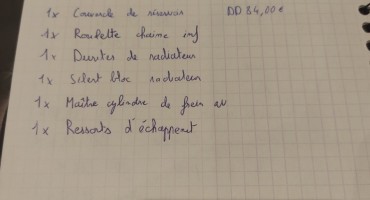 1x Couvercle de réservoir DD 84,00€
1x Roulette chaine inf
1x Durites de radiateur
1x Silent bloc radiateur
1x Maître cylindre de frein au
1x Ressorts d'échappement